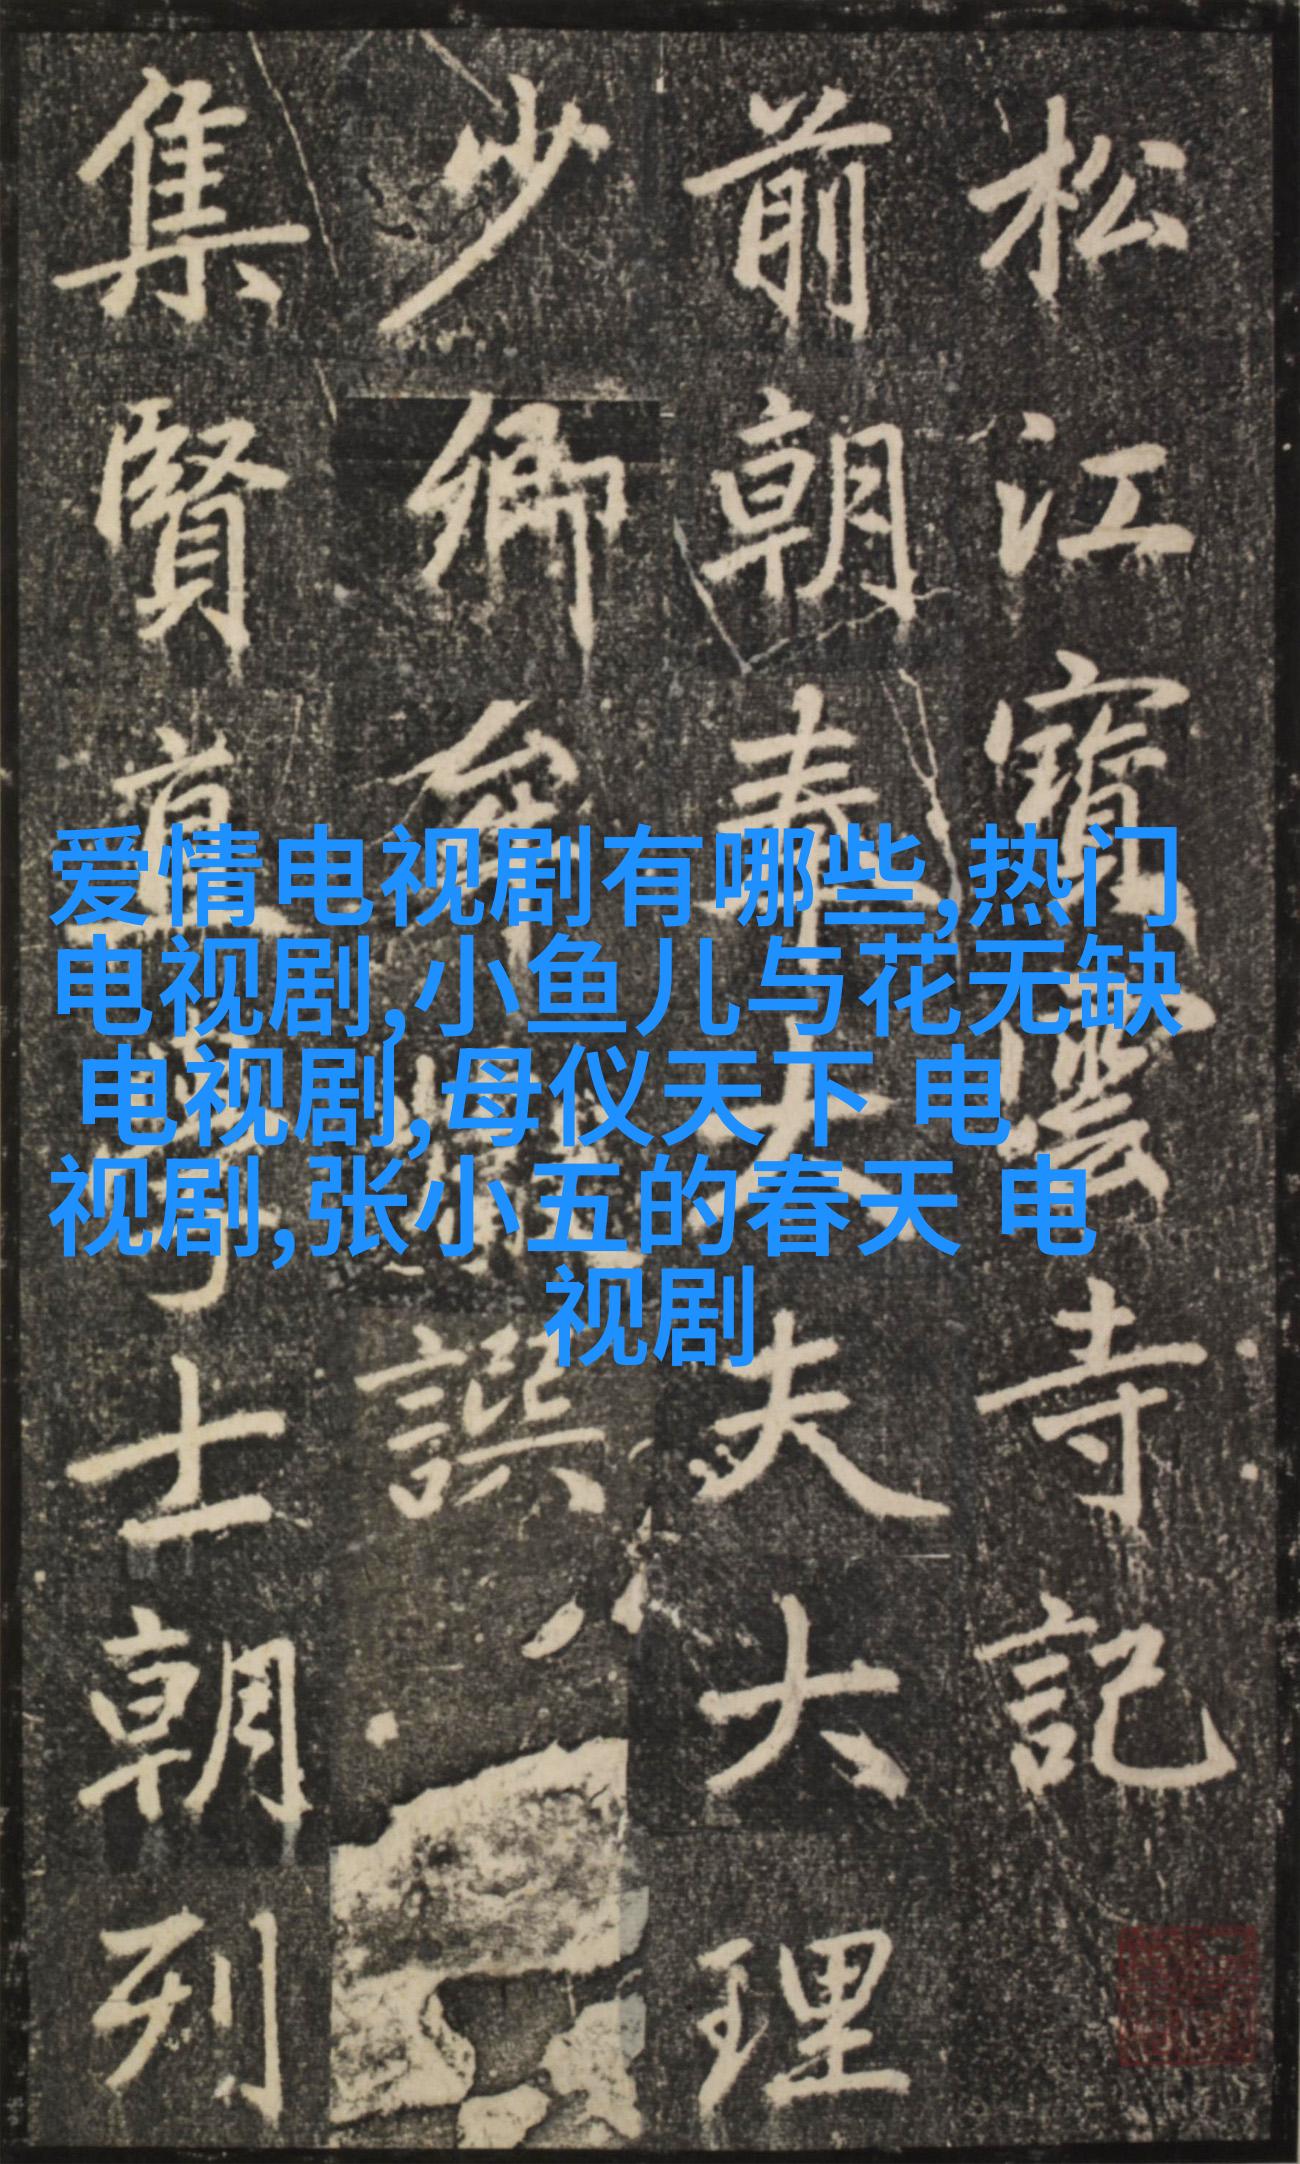 松江寶雲寺記
前朝奉大夫大理
少卿牟巘譔
集賢直學士朝列
爱情电视剧有哪些,热门
电视剧,小鱼儿与花无缺
电视剧,母仪天下 电
视剧,张小五的春天 电
视剧